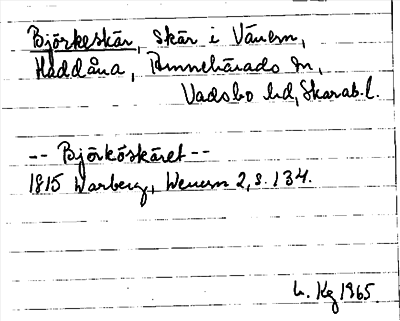 Björkeskär, skär i Vänern,
Haddåna, Binnebärads sn,
Vadsbo hd, Skarab. l.
-- Björköskäret --
1815 Warberg, Wenern 2, s. 134.
Kg 1965